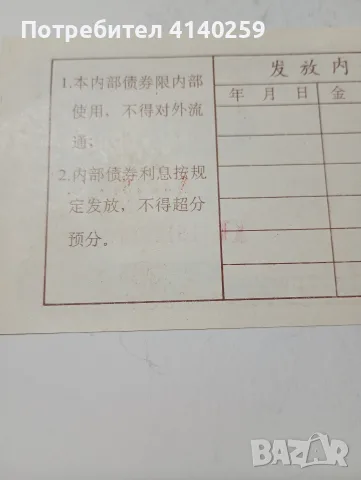 Потребител 4140259
1.本内部债券限内部
使用，不得对外流
通；
2.内部债券利息按规
定发放，不得超分
预分。
发放内
年 月 日 金
BAZAR